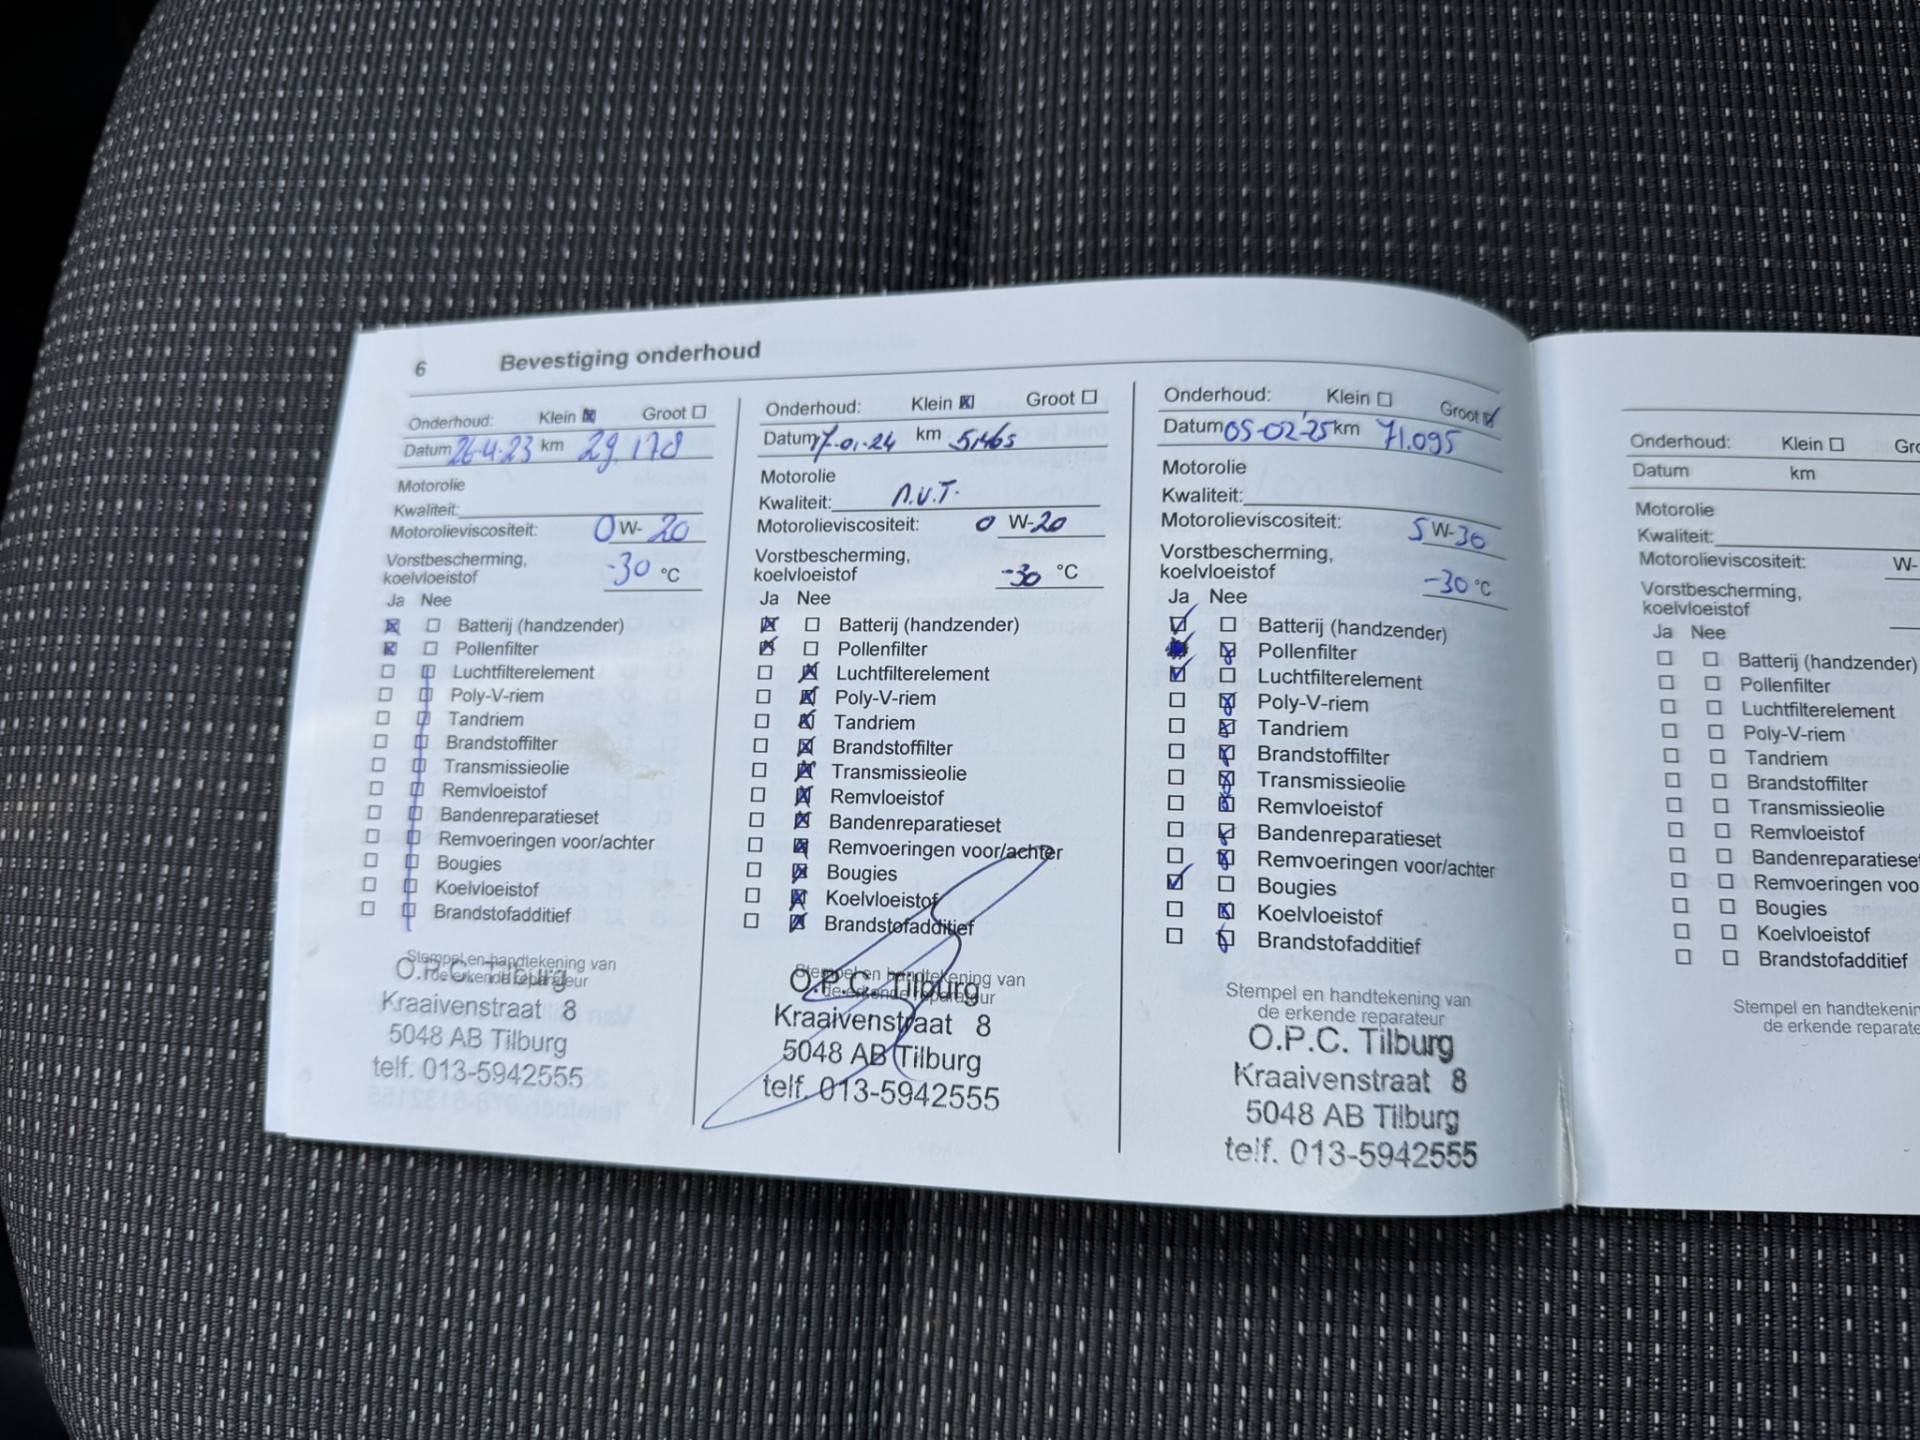 6 Bevestiging onderhoud
Onderhoud: Klein Groot
Datum 26-4-23 km 29.178
Motorolie
Kwaliteit:
Motorolieviscositeit: 0 W- 20
Vorstbescherming,
koelvloeistof -30 °C
Ja Nee
Batterij (handzender)
Pollenfilter
Luchtfilterelement
Poly-V-riem
Tandriem
Brandstoffilter
Transmissieolie
Remvloeistof
Bandenreparatieset
Remvoeringen voor/achter
Bougies
Koelvloeistof
Brandstofadditief
Stempel en handtekening van
de erkende reparateur
O.P.C. Tilburg
Kraaivenstraat 8
5048 AB Tilburg
telf. 013-5942555
Onderhoud: Klein Groot
Datum 17-01-24 km
Motorolie
Kwaliteit: n.v.t.
Motorolieviscositeit: 0 W-20
Vorstbescherming,
koelvloeistof -30 °C
Ja Nee
Batterij (handzender)
Pollenfilter
Luchtfilterelement
Poly-V-riem
Tandriem
Brandstoffilter
Transmissieolie
Remvloeistof
Bandenreparatieset
Remvoeringen voor/achter
Bougies
Koelvloeistof
Brandstofadditief
Stempel en handtekening van
de erkende reparateur
O.P.C. Tilburg
Kraaivenstraat 8
5048 AB Tilburg
telf. 013-5942555
Onderhoud: Klein Groot
Datum 05-02-'25 km 71.095
Motorolie
Kwaliteit:
Motorolieviscositeit: 5 W-30
Vorstbescherming,
koelvloeistof -30 °C
Ja Nee
Batterij (handzender)
Pollenfilter
Luchtfilterelement
Poly-V-riem
Tandriem
Brandstoffilter
Transmissieolie
Remvloeistof
Bandenreparatieset
Remvoeringen voor/achter
Bougies
Koelvloeistof
Brandstofadditief
Stempel en handtekening van
de erkende reparateur
O.P.C. Tilburg
Kraaivenstraat 8
5048 AB Tilburg
telf. 013-5942555
Onderhoud: Klein Gro
Datum km
Motorolie
Kwaliteit:
Motorolieviscositeit: W-
Vorstbescherming,
koelvloeistof
Ja Nee
Batterij (handzender)
Pollenfilter
Luchtfilterelement
Poly-V-riem
Tandriem
Brandstoffilter
Transmissieolie
Remvloeistof
Bandenreparatieset
Remvoeringen voo
Bougies
Koelvloeistof
Brandstofadditief
Stempel en handtekenin
de erkende reparate